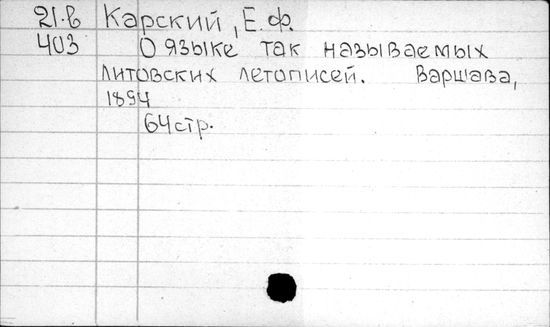 21.в Карский, Е.Ф.
403 О языке так называемых
литовских летописей. Варшава,
1894
64 стр.